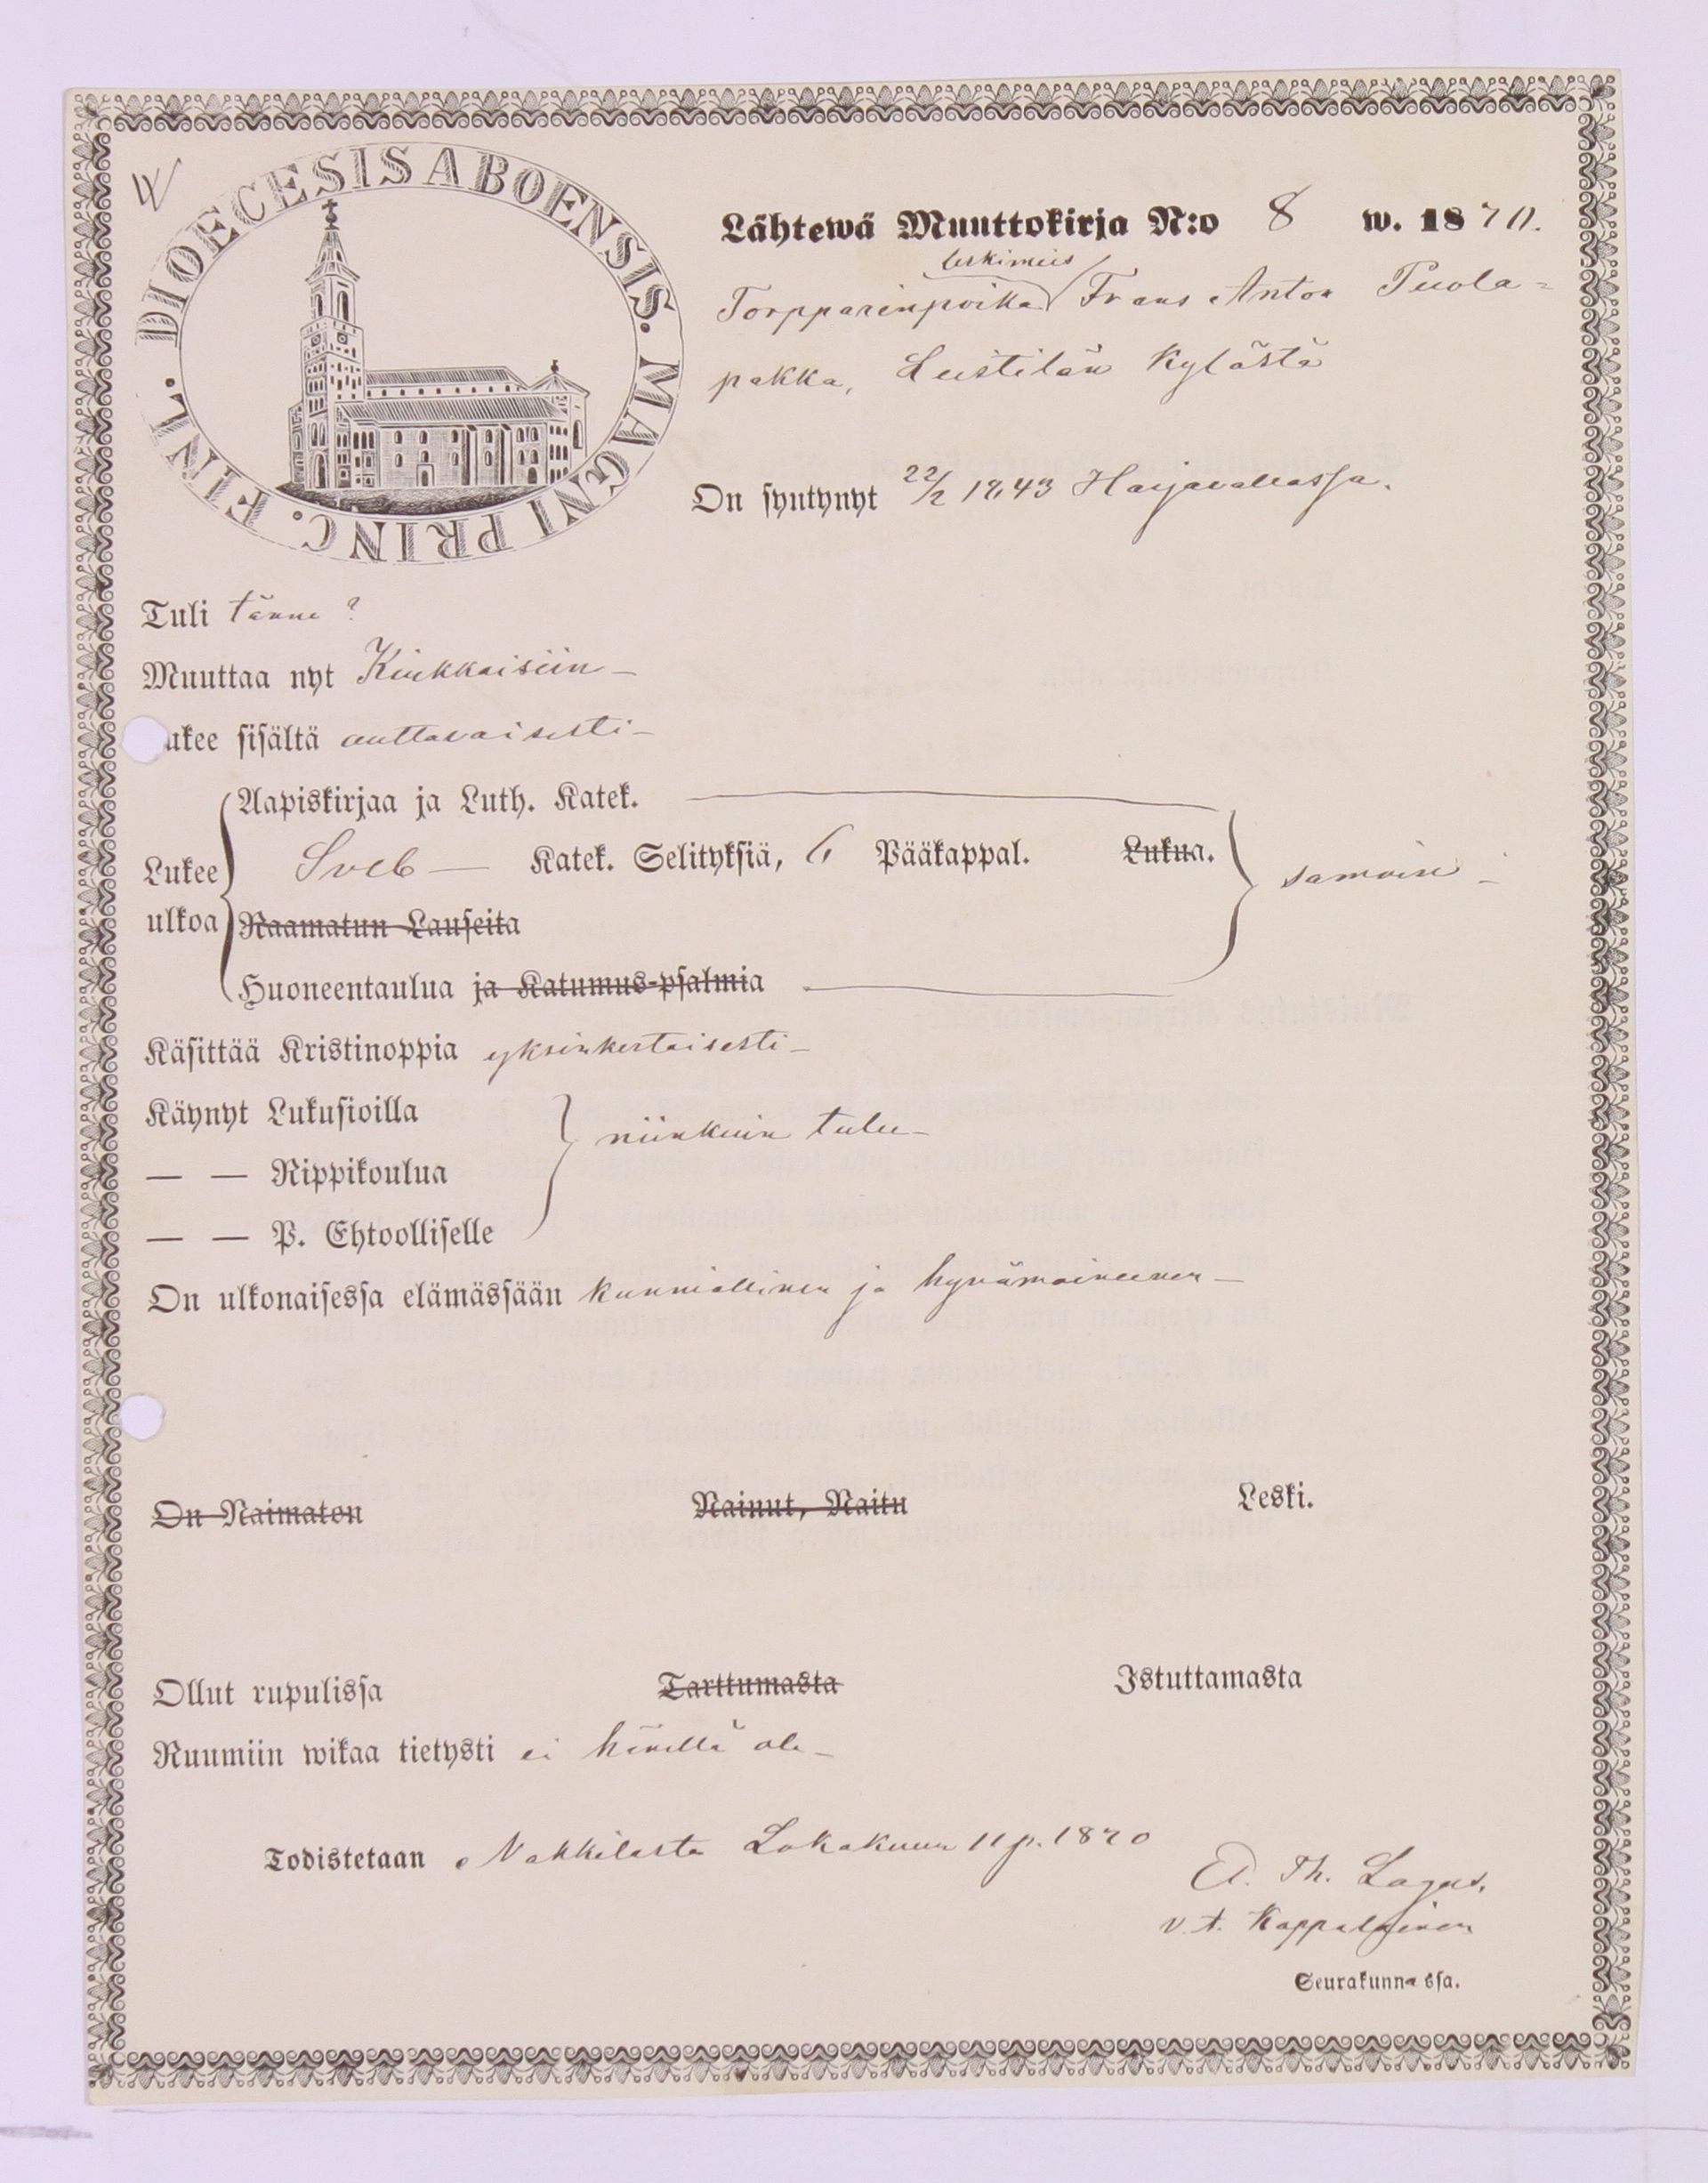 DIOECESIS ABOENSIS. MAGNI PRINC. FINL.
Lähtewä Muuttokirja N:o 8 w. 1870.
leskimies
Torpparinpoika Frans Anton Puola=
pakka, Leistilän Kylästä
On syntynyt 22/2 1843 Harjavallassa.
Tuli tänne ?
Muuttaa nyt Kiukkaisiin –
ukee sisältä auttavaisesti –
Aapiskirjaa ja Luth. Katek.
Lukee Sveb – Katek. Selityksiä, 6 Pääkappal. Lukua. samoin –
ulkoa Raamatun Lauseita
Huoneentaulua ja Katumus-psalmia
Käsittää Kristinoppia yksinkertaisesti –
Käynyt Lukusioilla
niinkuin tulee –
— — Rippikoulua
— — P. Ehtoolliselle
On ulkonaisessa elämässään kunniallinen ja hyvämaineinen –
On Naimaton Nainut, Naitu Leski.
Ollut rupulissa Tarttumasta Istuttamasta
Ruumiin wikaa tietysti ei hänellä ole –
Todistetaan Nakkilasta Lokakuun 11 p. 1870
A. Th. Lagus.
v. t. Kappalainen
Seurakunnassa.